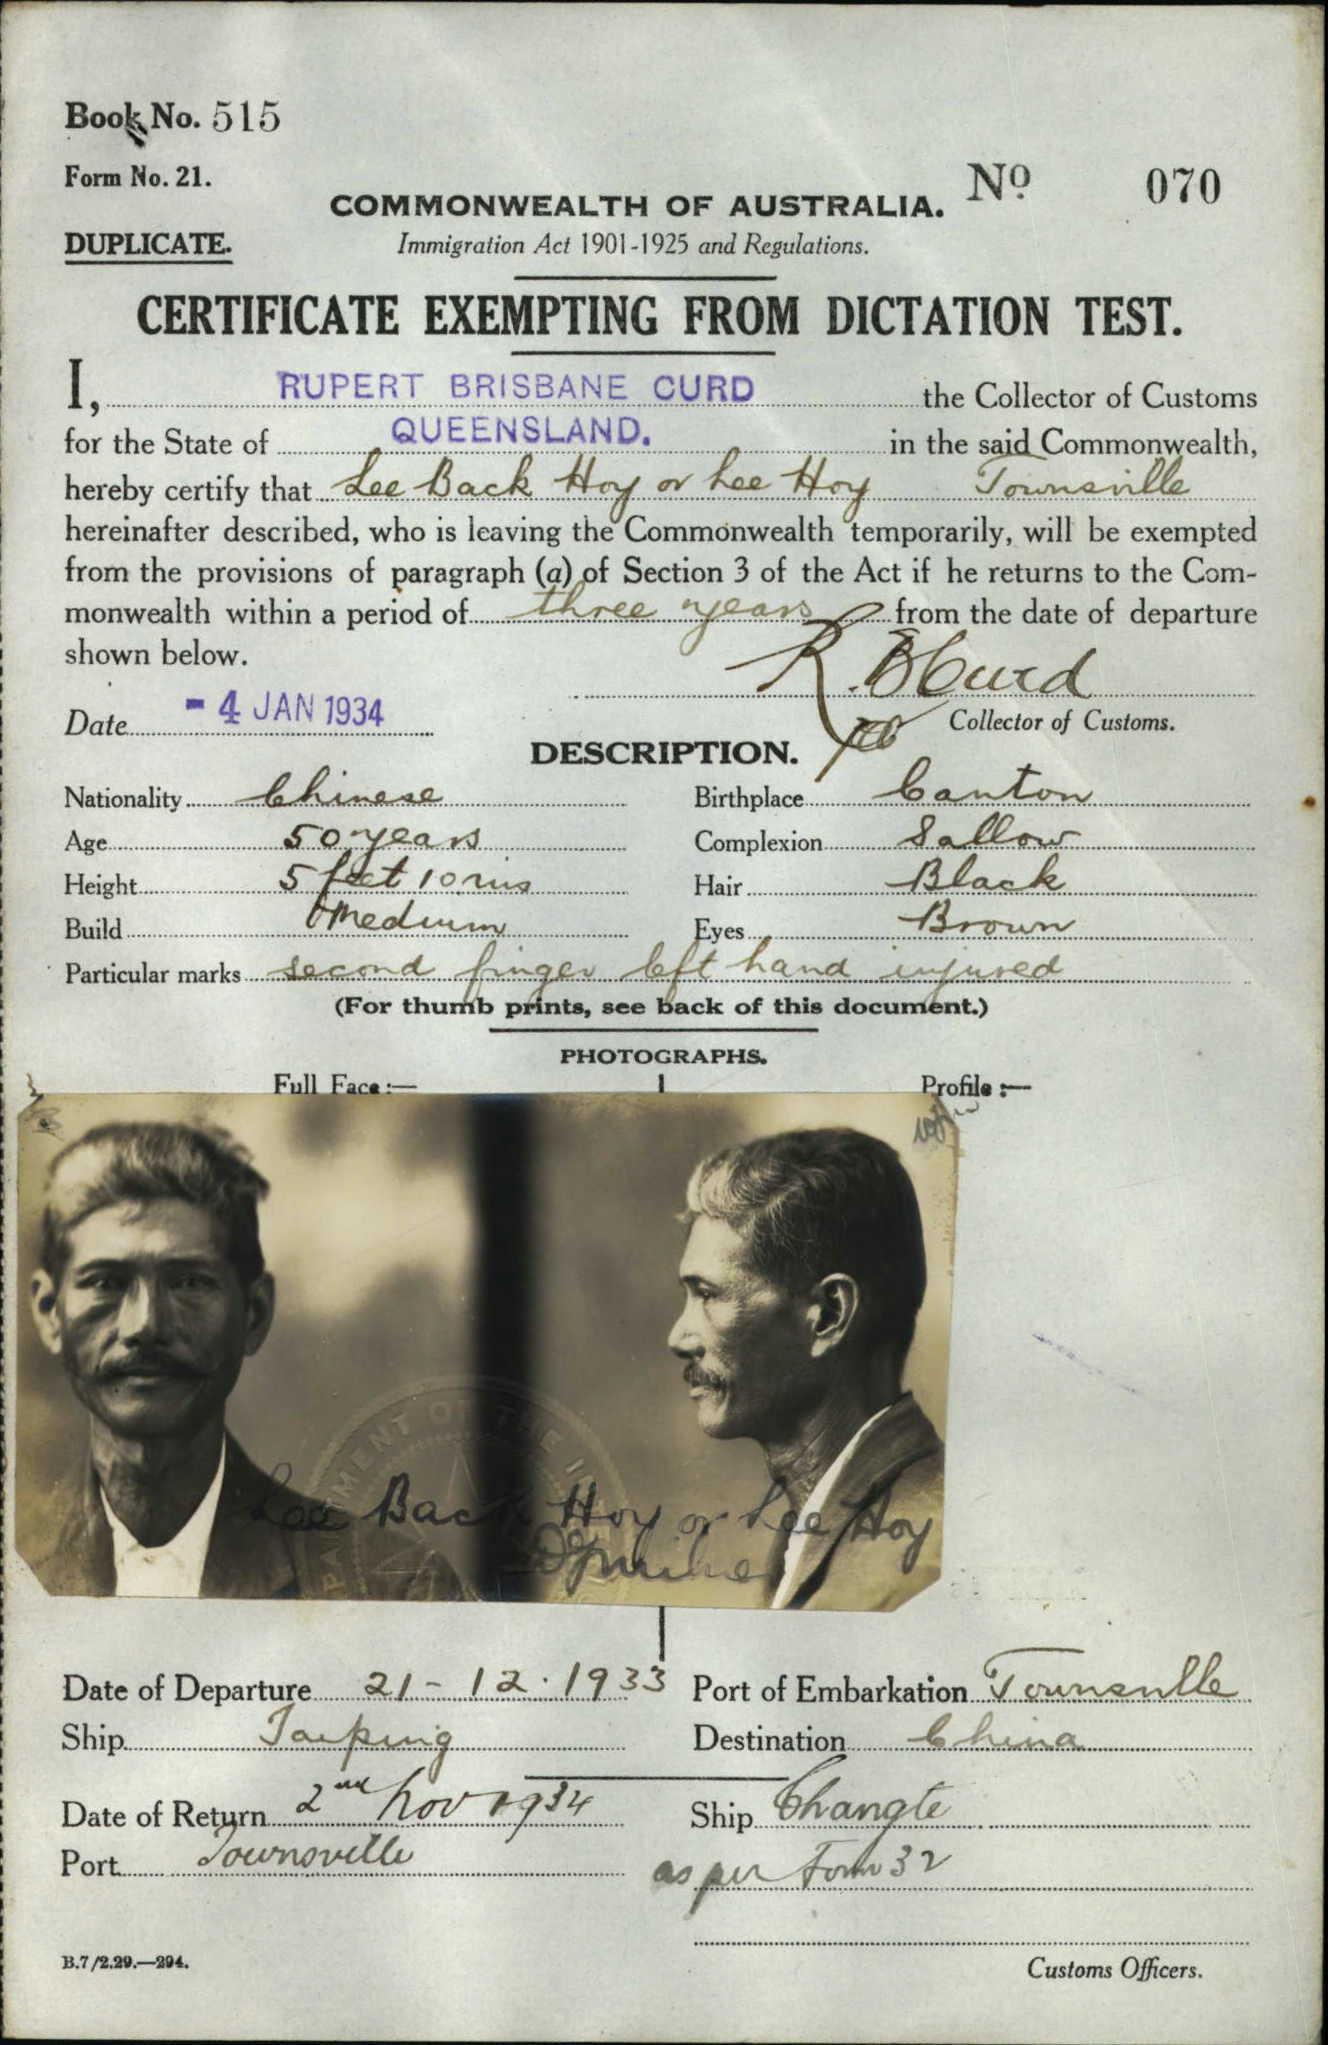 Book No. 515
Form No. 21.
No 070
COMMONWEALTH OF AUSTRALIA.
DUPLICATE.
Immigration Act 1901-1925 and Regulations.
CERTIFICATE EXEMPTING FROM DICTATION TEST.
I, RUPERT BRISBANE CURD the Collector of Customs
for the State of QUEENSLAND. in the said Commonwealth,
hereby certify that Lee Back Hoy or Lee Hoy Townsville
hereinafter described, who is leaving the Commonwealth temporarily, will be exempted
from the provisions of paragraph (a) of Section 3 of the Act if he returns to the Com-
monwealth within a period of three years from the date of departure
shown below.
R. B Curd
Date - 4 JAN 1934
Collector of Customs.
DESCRIPTION.
Nationality Chinese Birthplace Canton
Age 50 years Complexion Sallow
Height 5 feet 10 ins Hair Black
Build Medium Eyes Brown
Particular marks second finger left hand injured
(For thumb prints, see back of this document.)
PHOTOGRAPHS.
Full Face :— Profile :—
DEPARTMENT OF THE
Lee Back Hoy or Lee Hoy
Date of Departure 21-12.1933 Port of Embarkation Townsville
Ship Taiping Destination China
Date of Return 2nd Nov 1934 Ship Changte
Port Townsville as per Form 32
B.7/2.29.—294.
Customs Officers.